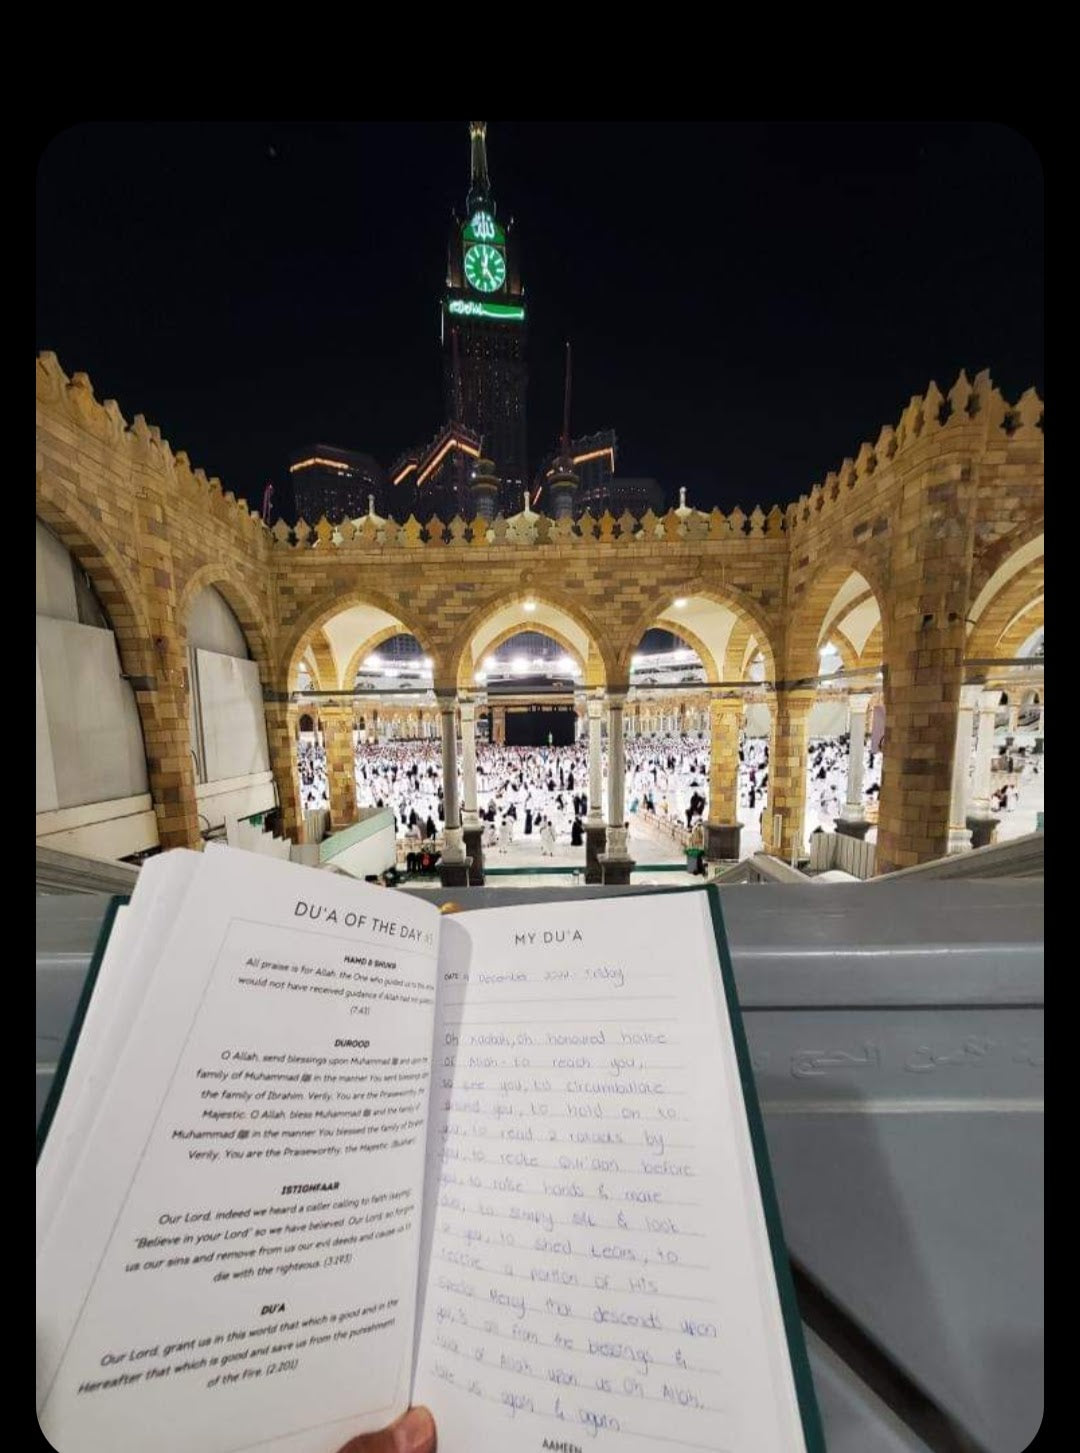 الله
DU'A OF THE DAY
HAMD & SHUKR
All praise is for Allah, the One who guided us to this
would not have received guidance if Allah had not
(7:43)
DUROOD
O Allah, send blessings upon Muhammad ﷺ and upon the
family of Muhammad ﷺ in the manner You sent blessings on
the family of Ibrahim. Verily, You are the Praiseworthy, the
Majestic. O Allah, bless Muhammad ﷺ and the family of
Muhammad ﷺ in the manner You blessed the family of Ibrahim.
Verily, You are the Praiseworthy, the Majestic. (Bukhari)
ISTIGHFAAR
Our Lord, indeed we heard a caller calling to faith (saying)
"Believe in your Lord" so we have believed. Our Lord, so forgive
us our sins and remove from us our evil deeds and cause us to
die with the righteous. (3:193)
DU'A
Our Lord, grant us in this world that which is good and in the
Hereafter that which is good and save us from the punishment
of the Fire. (2:201)
MY DU'A
DATE December Friday
Oh Kaabah, oh honoured house
of Allah - to reach you,
to see you, to circumbulate
around you, to hold on to
you, to read 2 rakaats by
you, to recite Qur'aan before
you, to raise hands & make
dua, to simply sit & look
@ you, to shed tears, to
receive a portion of His
special Mercy that descends upon
you, is all from the blessings &
of Allah upon us Oh Allah,
take us again & again
AAMEEN